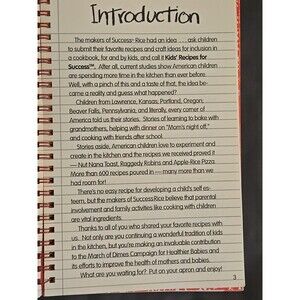 Introduction
The makers of Success® Rice had an idea . . . ask children
to submit their favorite recipes and craft ideas for inclusion in
a cookbook, for and by kids, and call it Kids' Recipes for
Success℠. After all, current studies show American children
are spending more time in the kitchen than ever before.
Well, with a pinch of this and a taste of that, the idea be-
came a reality and guess what happened?
Children from Lawrence, Kansas, Portland, Oregon;
Beaver Falls, Pennsylvania; and literally, every corner of
America told us their stories. Stories of learning to bake with
grandmothers, helping with dinner on "Mom's night off,"
and cooking with friends after school.
Stories aside, American children love to experiment and
create in the kitchen and the recipes we received proved it
— Nut Nana Toast, Raggedy Robins and Apple-Rice Pizza.
More than 600 recipes poured in — many more than we
had room for!
There's no easy recipe for developing a child's self es-
teem, but the makers of Success Rice believe that parental
involvement and family activities like cooking with children
are vital ingredients.
Thanks to all of you who shared your favorite recipes with
us. Not only are you continuing a wonderful tradition of kids
in the kitchen, but you're making an invaluable contribution
to the March of Dimes Campaign for Healthier Babies and
its efforts to improve the health of mothers and babies.
What are you waiting for? Put on your apron and enjoy!
3